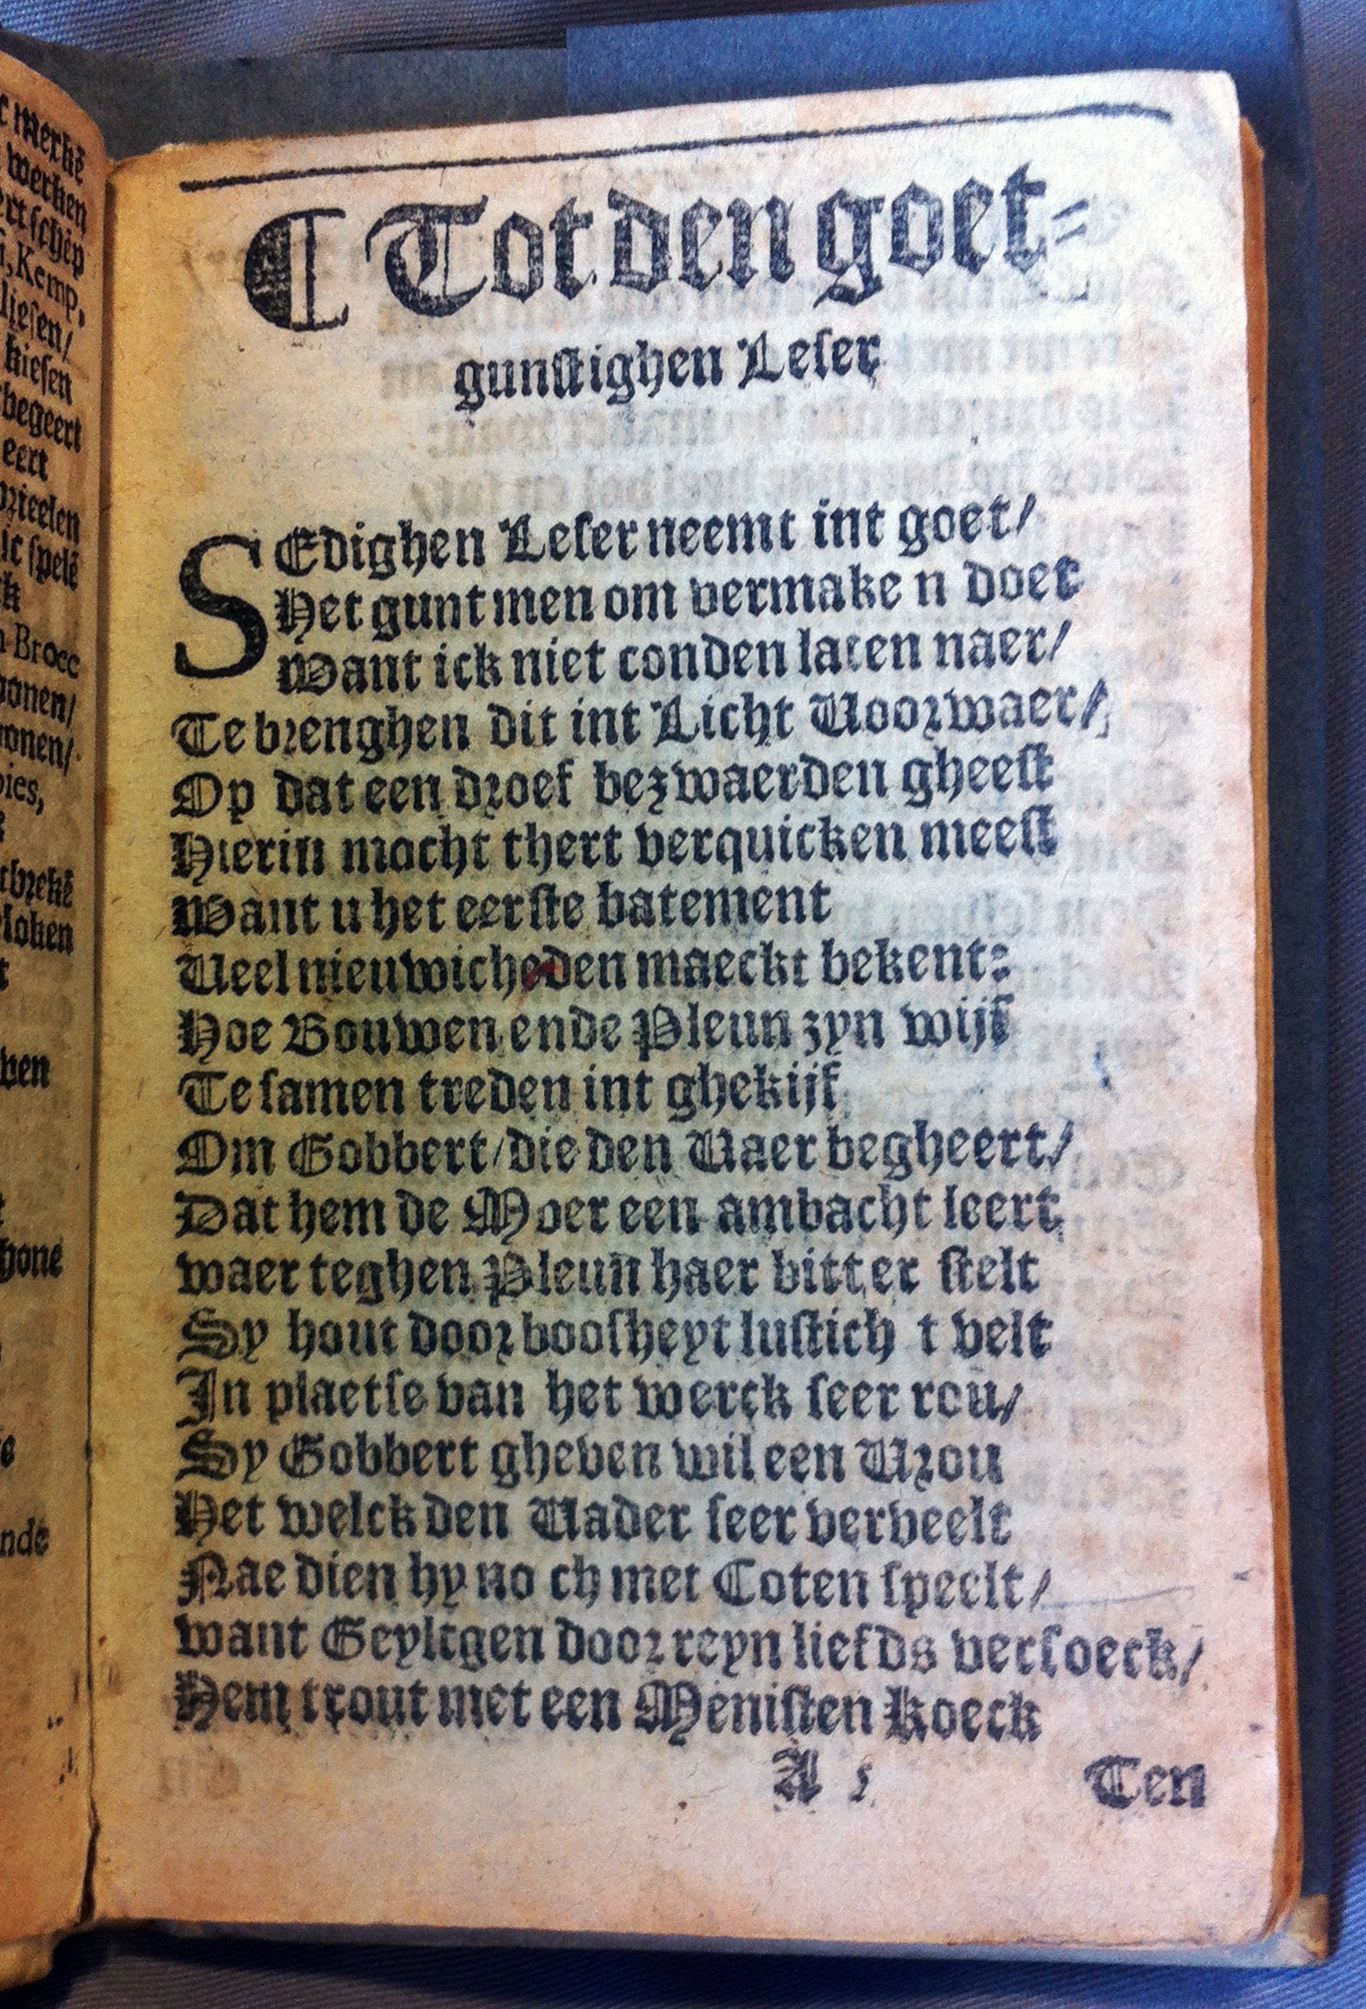 ¶ Tot den goet-
gunstighen Leser
SEdighen Leser neemt int goet/
Het gunt men om vermake n doet
Want ick niet conden laten naer/
Te brenghen dit int Licht Voorwaer/
Op dat een droef bezwaerden gheest
Hierin mocht thert verquicken meest
Want u het eerste batement
Veel nieuwicheden maeckt bekent:
Hoe Bouwen ende Pleun zyn wijf
Te samen treden int ghekijf
Om Gobbert/die den Vaer begheert/
Dat hem de Moer een ambacht leert
waer teghen Pleun haer bitter stelt
Sy hout door boosheyt lustich t velt
In plaetse van het werck seer rou/
Sy Gobbert gheven wil een Vrou
Het welck den Vader seer verveelt
Nae dien hy no ch met Coten speelt/
want Geyltgen door reyn liefds versoeck/
Hem trout met een Menisten koeck
A 5 Ten